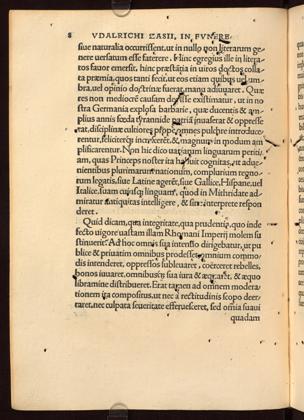 8 VDALRICHI ZASII, IN FVNERE
siue naturalia occurrissent, ut in nullo non literarum ge-
nere uersatum esse faterere. Hinc egregius ille in litera-
tos fauor emersit, hinc præstãtia in uiros doctos colla-
ta præmia, quos tanti fecit, ut eos etiam quibus uel um-
bra, uel opinio doctrinæ fuerat, manu adiuuaret. Quæ
res non mediocrē causam dedisse existimatur, ut in no
stra Germania explosa barbarie, quæ ducentis & am-
plius annis fœda tyrannide patriā inuaserat & oppresse
rat, disciplinæ cultiores propē omnes pulchre introduce-
rentur, feliciter increscerēt, & magnum in modum am
plificarentur. Non hic dico uariarum linguarum peritiam,
quas Princeps noster ita habuit cognitas, ut adue-
nientibus plurimarum nationum, complurium regno-
rum legatis, siue Latine agerēt, siue Gallice, Hispane, uel
Italice, suam cuiusque linguam, quod in Mithridate ad-
miratur antiquitas intelligere, & sine interprete respon
deret.
Quid dicam, qua integritate, qua prudentia, quo inde-
fecto uigore uastam illam Rhomani Imperij molem su
stinuerit? Ad hoc omnis sua intensio dirigebatur, ut pu
blice & priuatim omnibus prodesset, omnium commo
dis intenderet, oppressos subleuaret, coërceret rebelles,
bonos iuuaret, omnibusque sua iura & æqua lance, & æquo
libramine distribueret. Erat tamen ad omnem modera-
tionem ita compositus, ut nec a rectitudinis scopo deer-
raret, nec culpata seueritate efferuesceret, sed omnia suaui
quadam